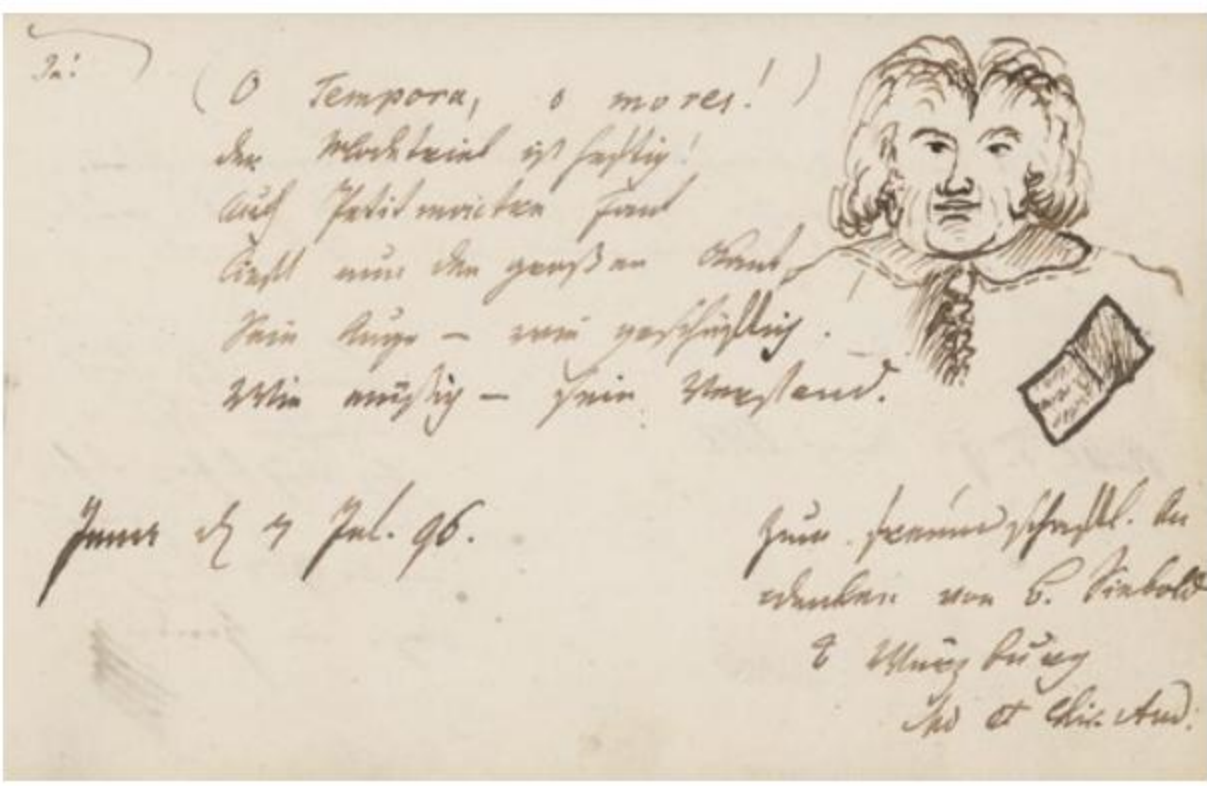 Ja!
( O Tempora, o mores! )
der Modetrieb ist heftig!
Auch Petitmaitre Fant
ließt nun den großen Kant,
Sein Auge – wie geschäftig.
Wie müßig – sein Verstand.
Jena d 7 Jul. 96.
Zum freundschaftl. An
denken von B. Siebold
Würzburg
Md et Chir. Aud: